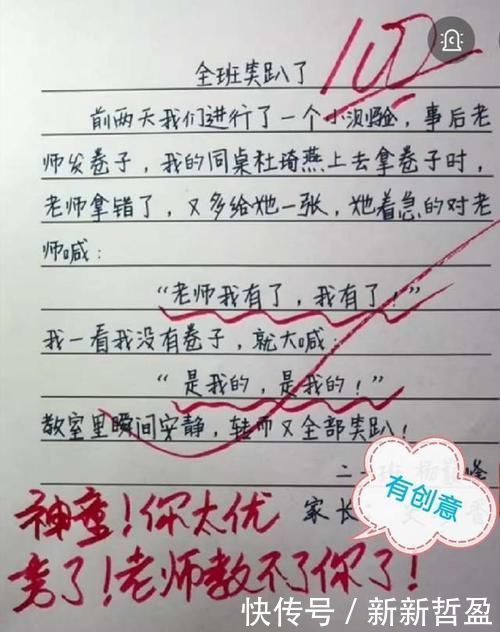 全班笑趴了
100
前两天我们进行了一个小测验，事后老
师发卷子，我的同桌杜琦燕上去拿卷子时，
老师拿错了，又多给她一张，她着急的对老
师喊：
“老师我有了，我有了！”
我一看我没有卷子，就大喊：
“是我的，是我的！”
教室里瞬间安静，转而又全部笑趴！
二一班
家长：
有创意
神童！你太优
秀了！老师教不了你了！
快传号／新新哲盈